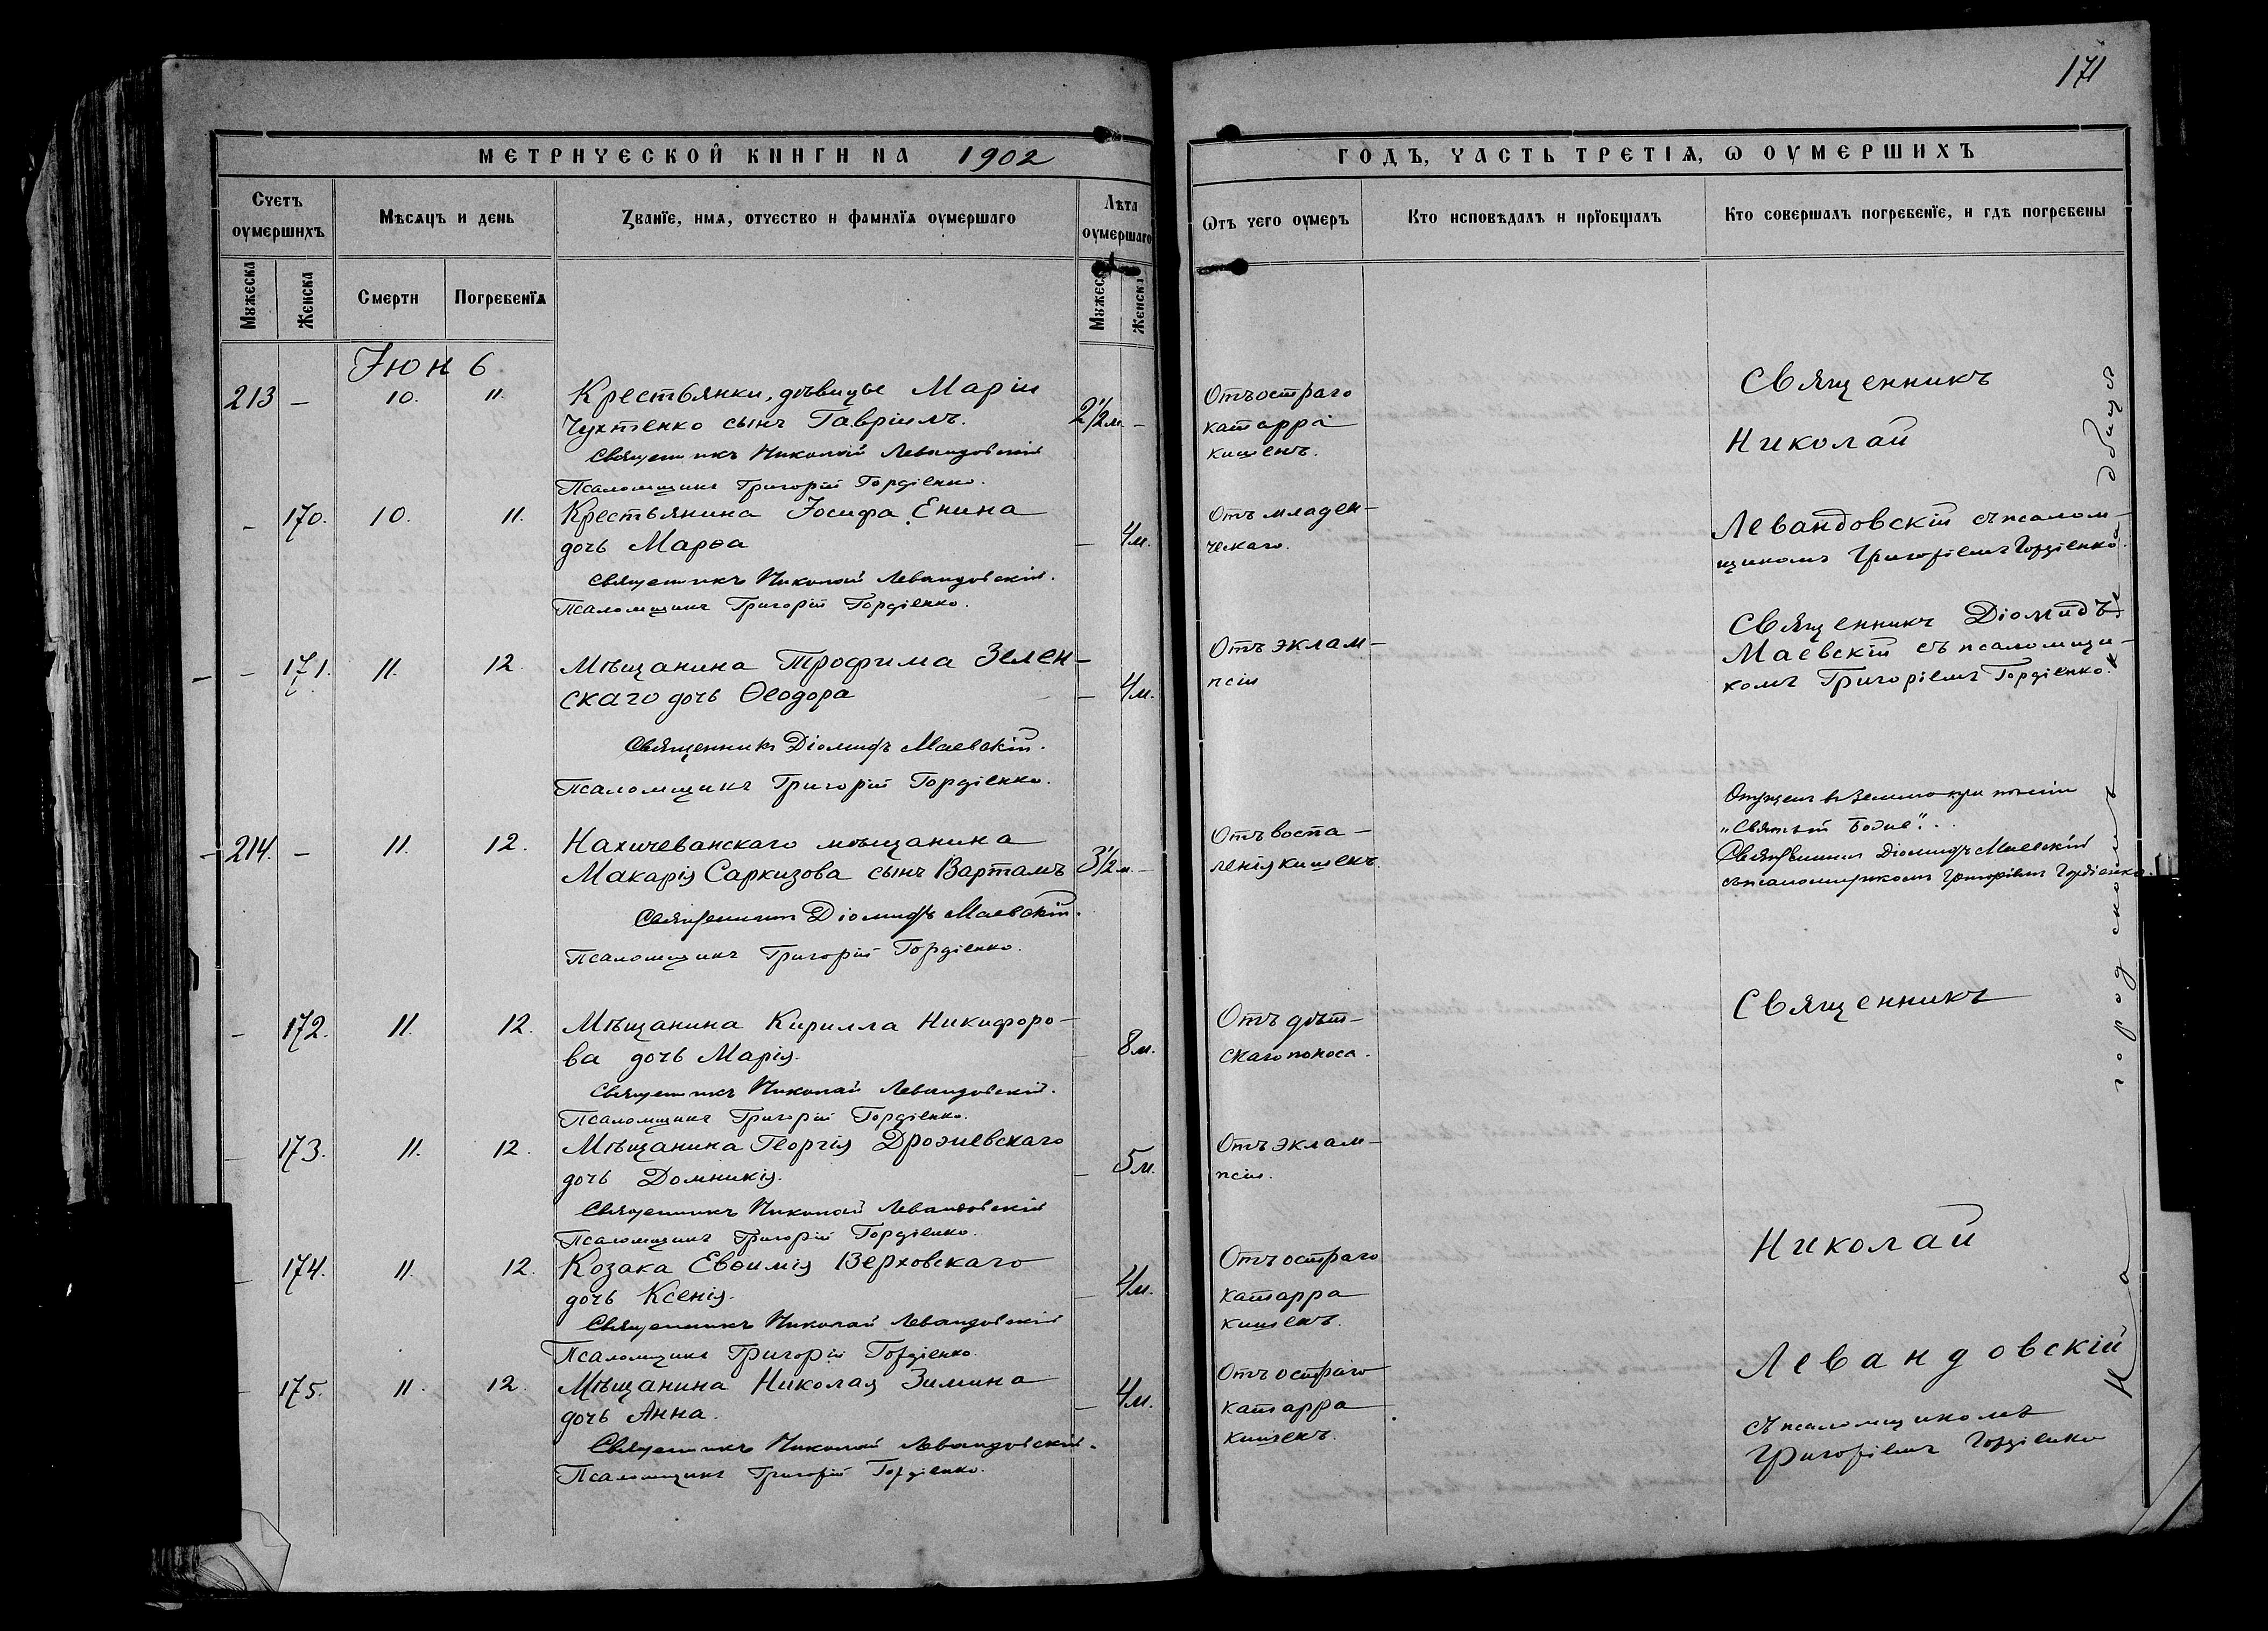 171
МЕТРИЧЕСКОЙ КНИГИ НА 1902
ГОДЪ, ЧАСТЬ ТРЕТІѦ, Ѡ ОУМЕРШИХЪ
Счетъ оумершихъ
Мѣсяцъ и день
Званїе, имѧ, отчество и фамилїѧ оумершаго
Лѣта оумершаго
Ѿтъ чего оумеръ
Кто исповѣдалъ и прїобщалъ
Кто совершалъ погребенїе, и гдѣ погребены
Мꙋжеска
Женска
Смерти
Погребенїѧ
Мꙋжеска
Женска
Іюнь
213 — 10. 11. Крестьянки, дѣвицы Маріи
Чухтенко сынъ Гавріилъ. 2½ м. —
Священникъ Николай Левандовскій
Псаломщикъ Григорій Гордіенко.
Отъ остраго
катарра
кишекъ.
Священникъ
Николай
— 170. 10. 11. Крестьянина Іосифа Енина
дочь Марѳа — 4 м.
Священникъ Николай Левандовскій.
Псаломщикъ Григорій Гордіенко.
Отъ младен-
ческаго.
Левандовскій съ псалом-
щикомъ Григоріемъ Гордіенко.
— 171. 11. 12. Мѣщанина Трофима Зелен-
скаго дочь Ѳеодора — 4 м.
Священникъ Діомидъ Маевскій.
Псаломщикъ Григорій Гордіенко.
Отъ эклам-
псіи
Священникъ Діомидъ
Маевскій съ псаломщи-
комъ Григоріемъ Гордіенко.
214. — 11. 12. Нахичеванскаго мѣщанина
Макарія Саркизова сынъ Вартамъ 3½ м. —
Священникъ Діомидъ Маевскій.
Псаломщикъ Григорій Гордіенко.
Отъ воспа-
ленія кишекъ.
въ землю при пѣніи
"Святый Боже"...
Священникъ Діомидъ Маевскій
съ псаломщикомъ Григоріемъ Гордіенко.
— 172. 11. 12. Мѣщанина Кирилла Никифоро-
ва дочь Марія. — 8 м.
Священникъ Николай Левандовскій.
Псаломщикъ Григорій Гордіенко.
Отъ дѣт-
скаго поноса.
Священникъ
— 173. 11. 12. Мѣщанина Георгія Дрожевскаго
дочь Домникія. — 5 м.
Священникъ Николай Левандовскій
Псаломщикъ Григорій Гордіенко.
Отъ эклам-
псіи.
Николай
— 174. 11. 12. Козака Евѳимія Верховскаго
дочь Ксенія. — 4 м.
Священникъ Николай Левандовскій
Псаломщикъ Григорій Гордіенко.
Отъ остраго
катарра
кишекъ.
Левандовскій
— 175. 11. 12. Мѣщанина Николая Зимина
дочь Анна. — 4 м.
Священникъ Николай Левандовскій.
Псаломщикъ Григорій Гордіенко.
Отъ остраго
катарра
кишекъ.
съ псаломщикомъ
Григоріемъ Гордіенко
На городскомъ